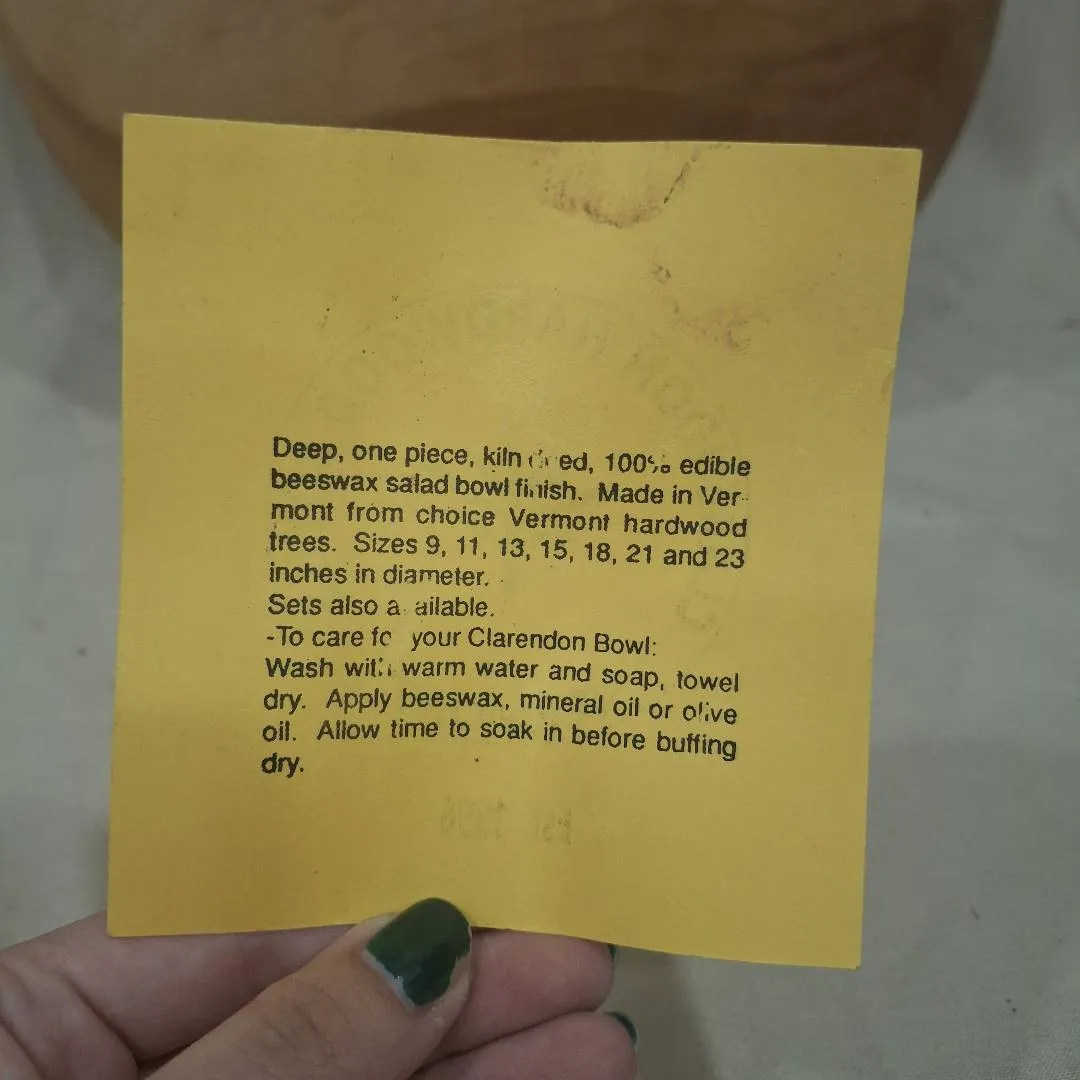 Deep, one piece, kiln dried, 100% edible
beeswax salad bowl finish. Made in Ver-
mont from choice Vermont hardwood
trees. Sizes 9, 11, 13, 15, 18, 21 and 23
inches in diameter.
Sets also available.
-To care for your Clarendon Bowl:
Wash with warm water and soap, towel
dry. Apply beeswax, mineral oil or olive
oil. Allow time to soak in before buffing
dry.